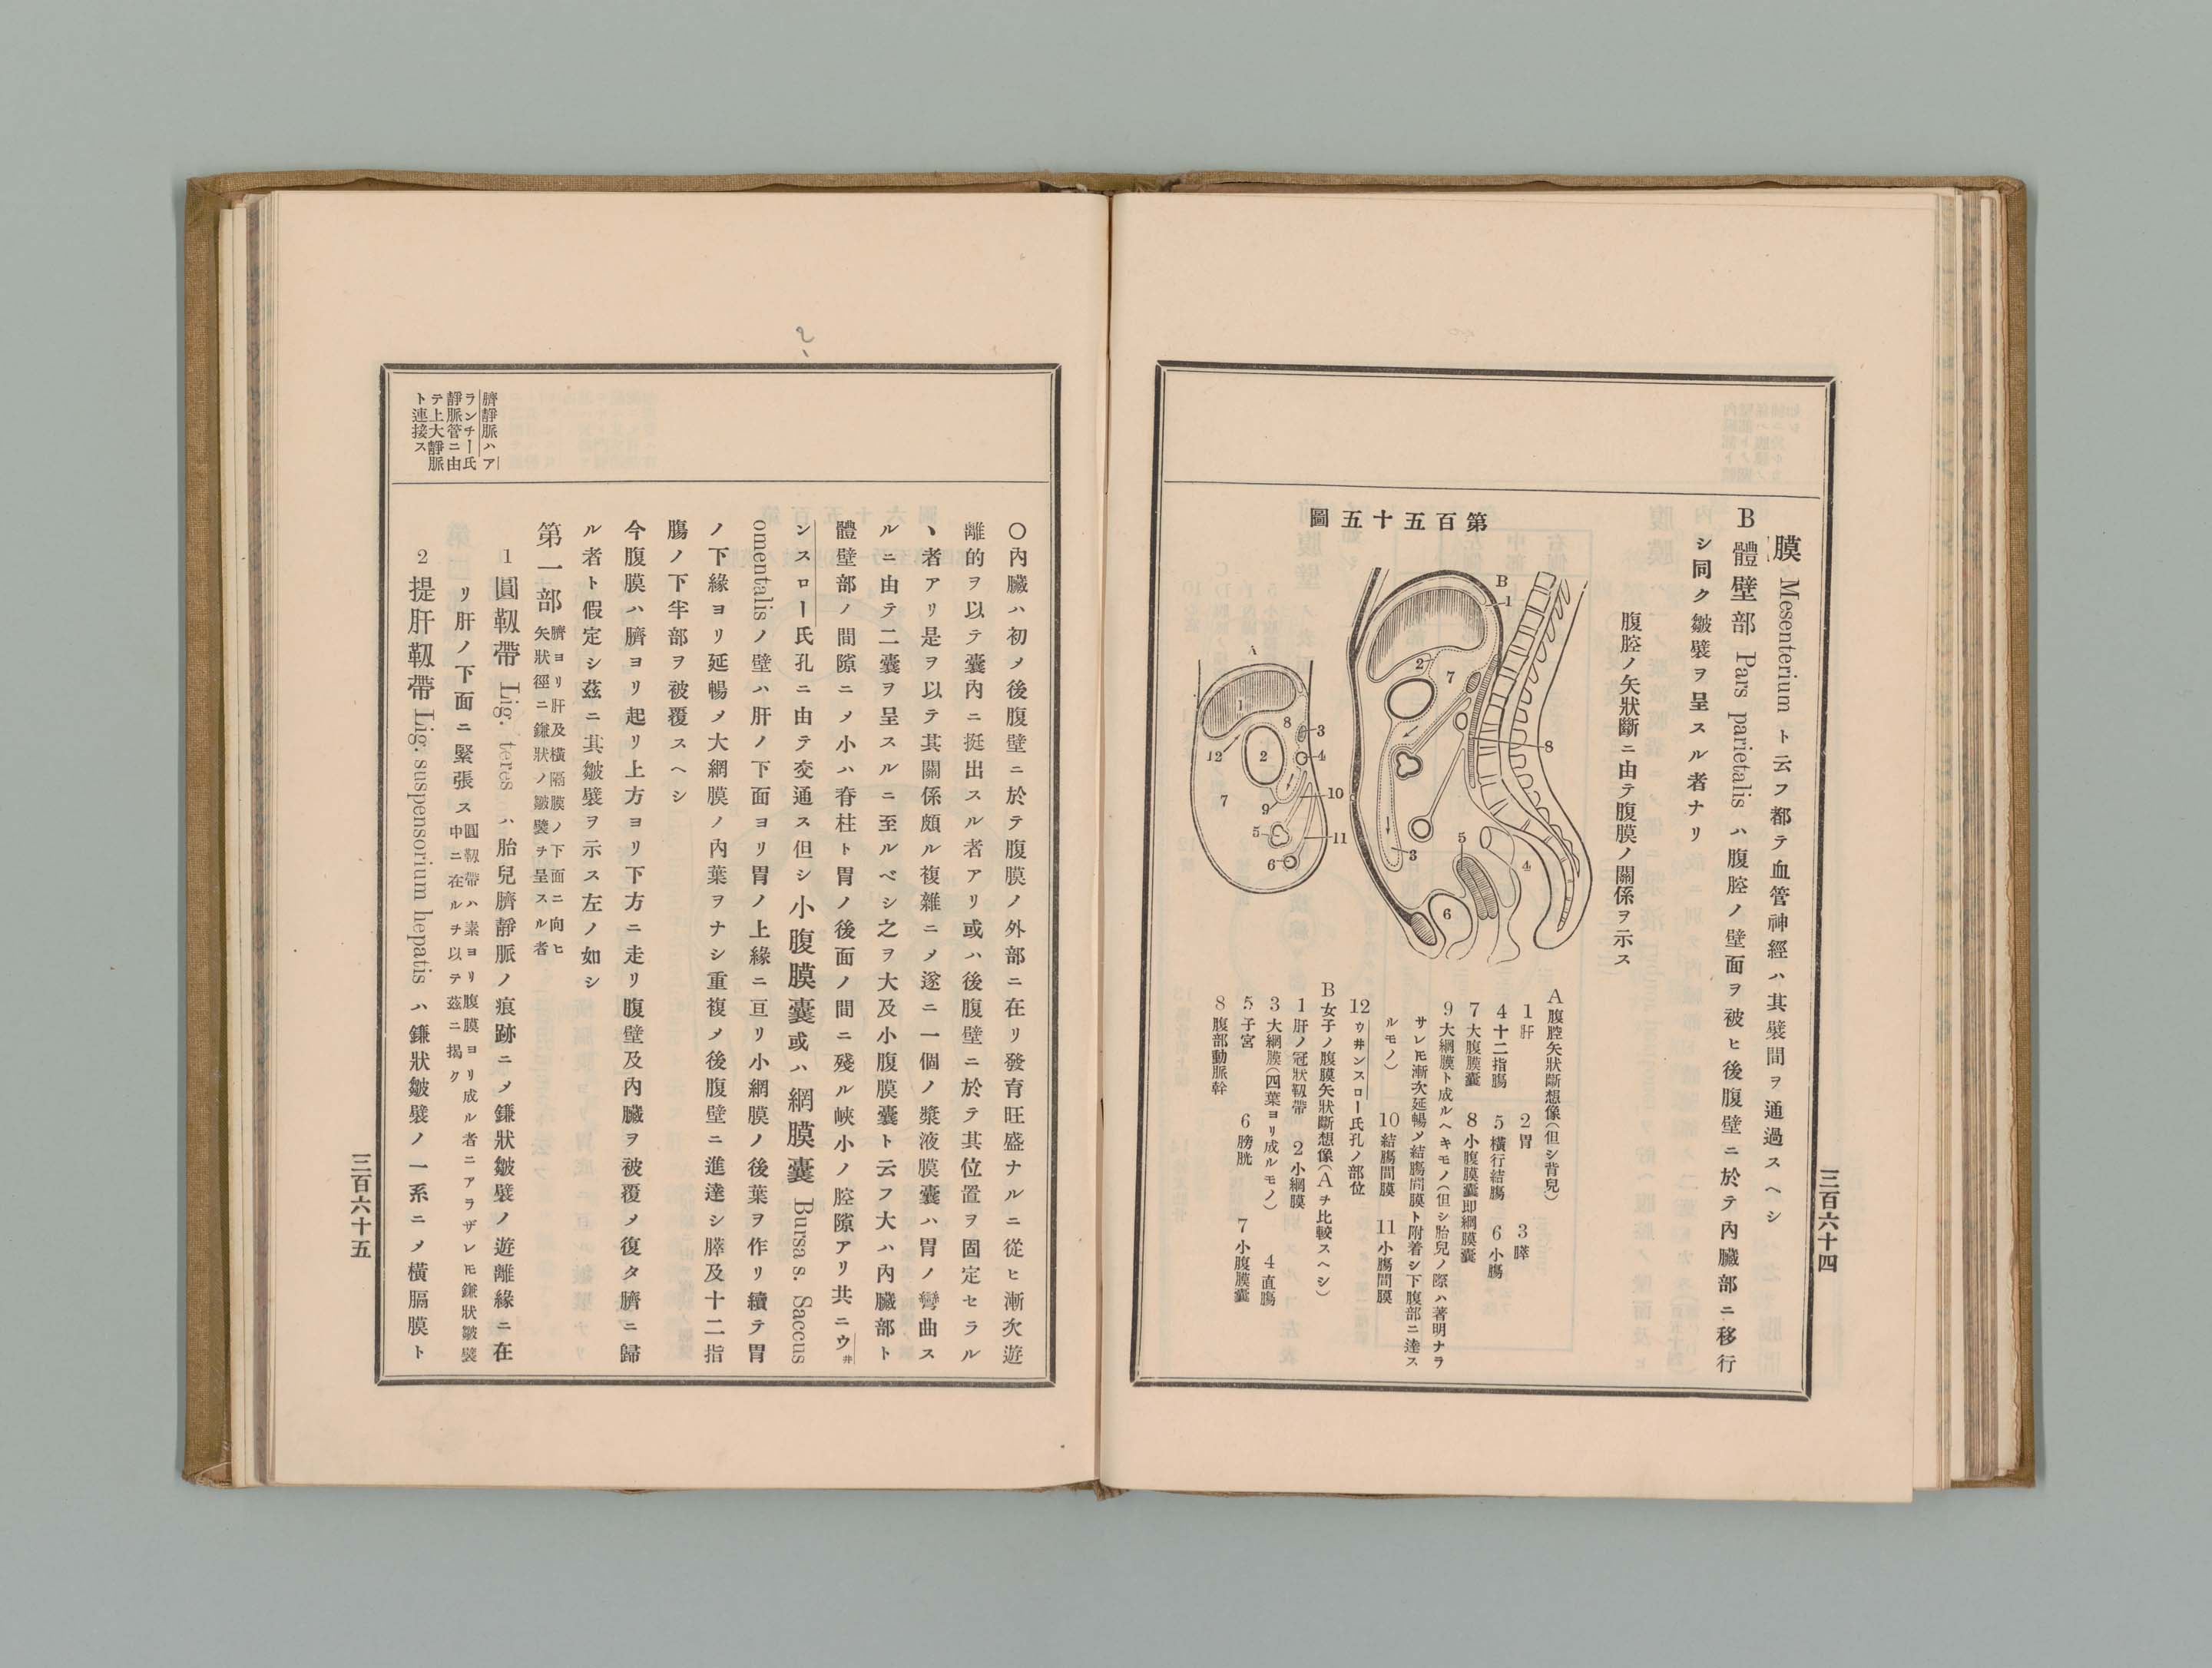 膜 Mesenterium ト云フ都テ血管神經ハ其襞間ヲ通過スヘシ
B 體壁部 Pars parietalis ハ腹腔ノ壁面ヲ被ヒ後腹壁ニ於テ內臟部ニ移行
シ同ク皺襞ヲ呈スル者ナリ
腹腔ノ矢狀斷ニ由テ腹膜ノ關係ヲ示ス
第百五十五圖
B
1
2
7
8
3
5
4
6
A
1
8
3
4
12
2
7
9
10
5
11
6
A 腹腔矢狀斷想像(但シ背兒)
1 肝 2 胃 3 膵
4 十二指膓 5 橫行結膓 6 小膓
7 大腹膜囊 8 小腹膜囊即網膜囊
9 大網膜ト成ルヘキモノ(但シ胎兒ノ際ハ著明ナラ
サレ𪜈漸次延暢メ結膓間膜ト附着シ下腹部ニ達ス
ルモノ) 10 結膓間膜 11 小膓間膜
12 ウ井ンスロー氏孔ノ部位
B 女子ノ腹膜矢狀斷想像(Aヲ比較スヘシ)
1 肝ノ冠狀靱帶 2 小網膜
3 大網膜(四葉ヨリ成ルモノ) 4 直膓
5 子宮 6 膀胱 7 小腹膜囊
8 腹部動脈幹
三百六十四
臍靜脈ハア
ランチー氏
靜脈管ニ由
テ上大靜脈
ト連接ス
〇內臟ハ初メ後腹壁ニ於テ腹膜ノ外部ニ在リ發育旺盛ナルニ從ヒ漸次遊
離的ヲ以テ囊內ニ挺出スル者アリ或ハ後腹壁ニ於テ其位置ヲ固定セラル
ヽ者アリ是ヲ以テ其關係頗ル複雜ニメ遂ニ一個ノ漿液膜囊ハ胃ノ彎曲ス
ルニ由テ二囊ヲ呈スルニ至ルベシ之ヲ大及小腹膜囊ト云フ大ハ內臟部ト
體壁部ノ間隙ニメ小ハ脊柱ト胃ノ後面ノ間ニ殘ル峽小ノ腔隙アリ共ニウ井
ンスロー氏孔ニ由テ交通ス但シ小腹膜囊或ハ網膜囊 Bursa s. Saccus
omentalis ノ壁ハ肝ノ下面ヨリ胃ノ上緣ニ亘リ小網膜ノ後葉ヲ作リ續テ胃
ノ下緣ヨリ延暢メ大網膜ノ內葉ヲナシ重複メ後腹壁ニ進達シ膵及十二指
膓ノ下半部ヲ被覆スヘシ
今腹膜ハ臍ヨリ起リ上方ヨリ下方ニ走リ腹壁及內臟ヲ被覆メ復タ臍ニ歸
ル者ト假定シ茲ニ其皺襞ヲ示ス左ノ如シ
第一部 臍ヨリ肝及橫隔膜ノ下面ニ向ヒ
矢狀徑ニ鎌狀ノ皺襞ヲ呈スル者
1 圓靱帶 Lig. teres ハ胎兒臍靜脈ノ痕跡ニメ鎌狀皺襞ノ遊離緣ニ在
リ肝ノ下面ニ緊張ス 圓靱帶ハ素ヨリ腹膜ヨリ成ル者ニアラザレ𪜈鎌狀皺襞
中ニ在ルヲ以テ茲ニ揭ク
2 提肝靱帶 Lig. suspensorium hepatis ハ鎌狀皺襞ノ一系ニメ橫膈膜ト
三百六十五